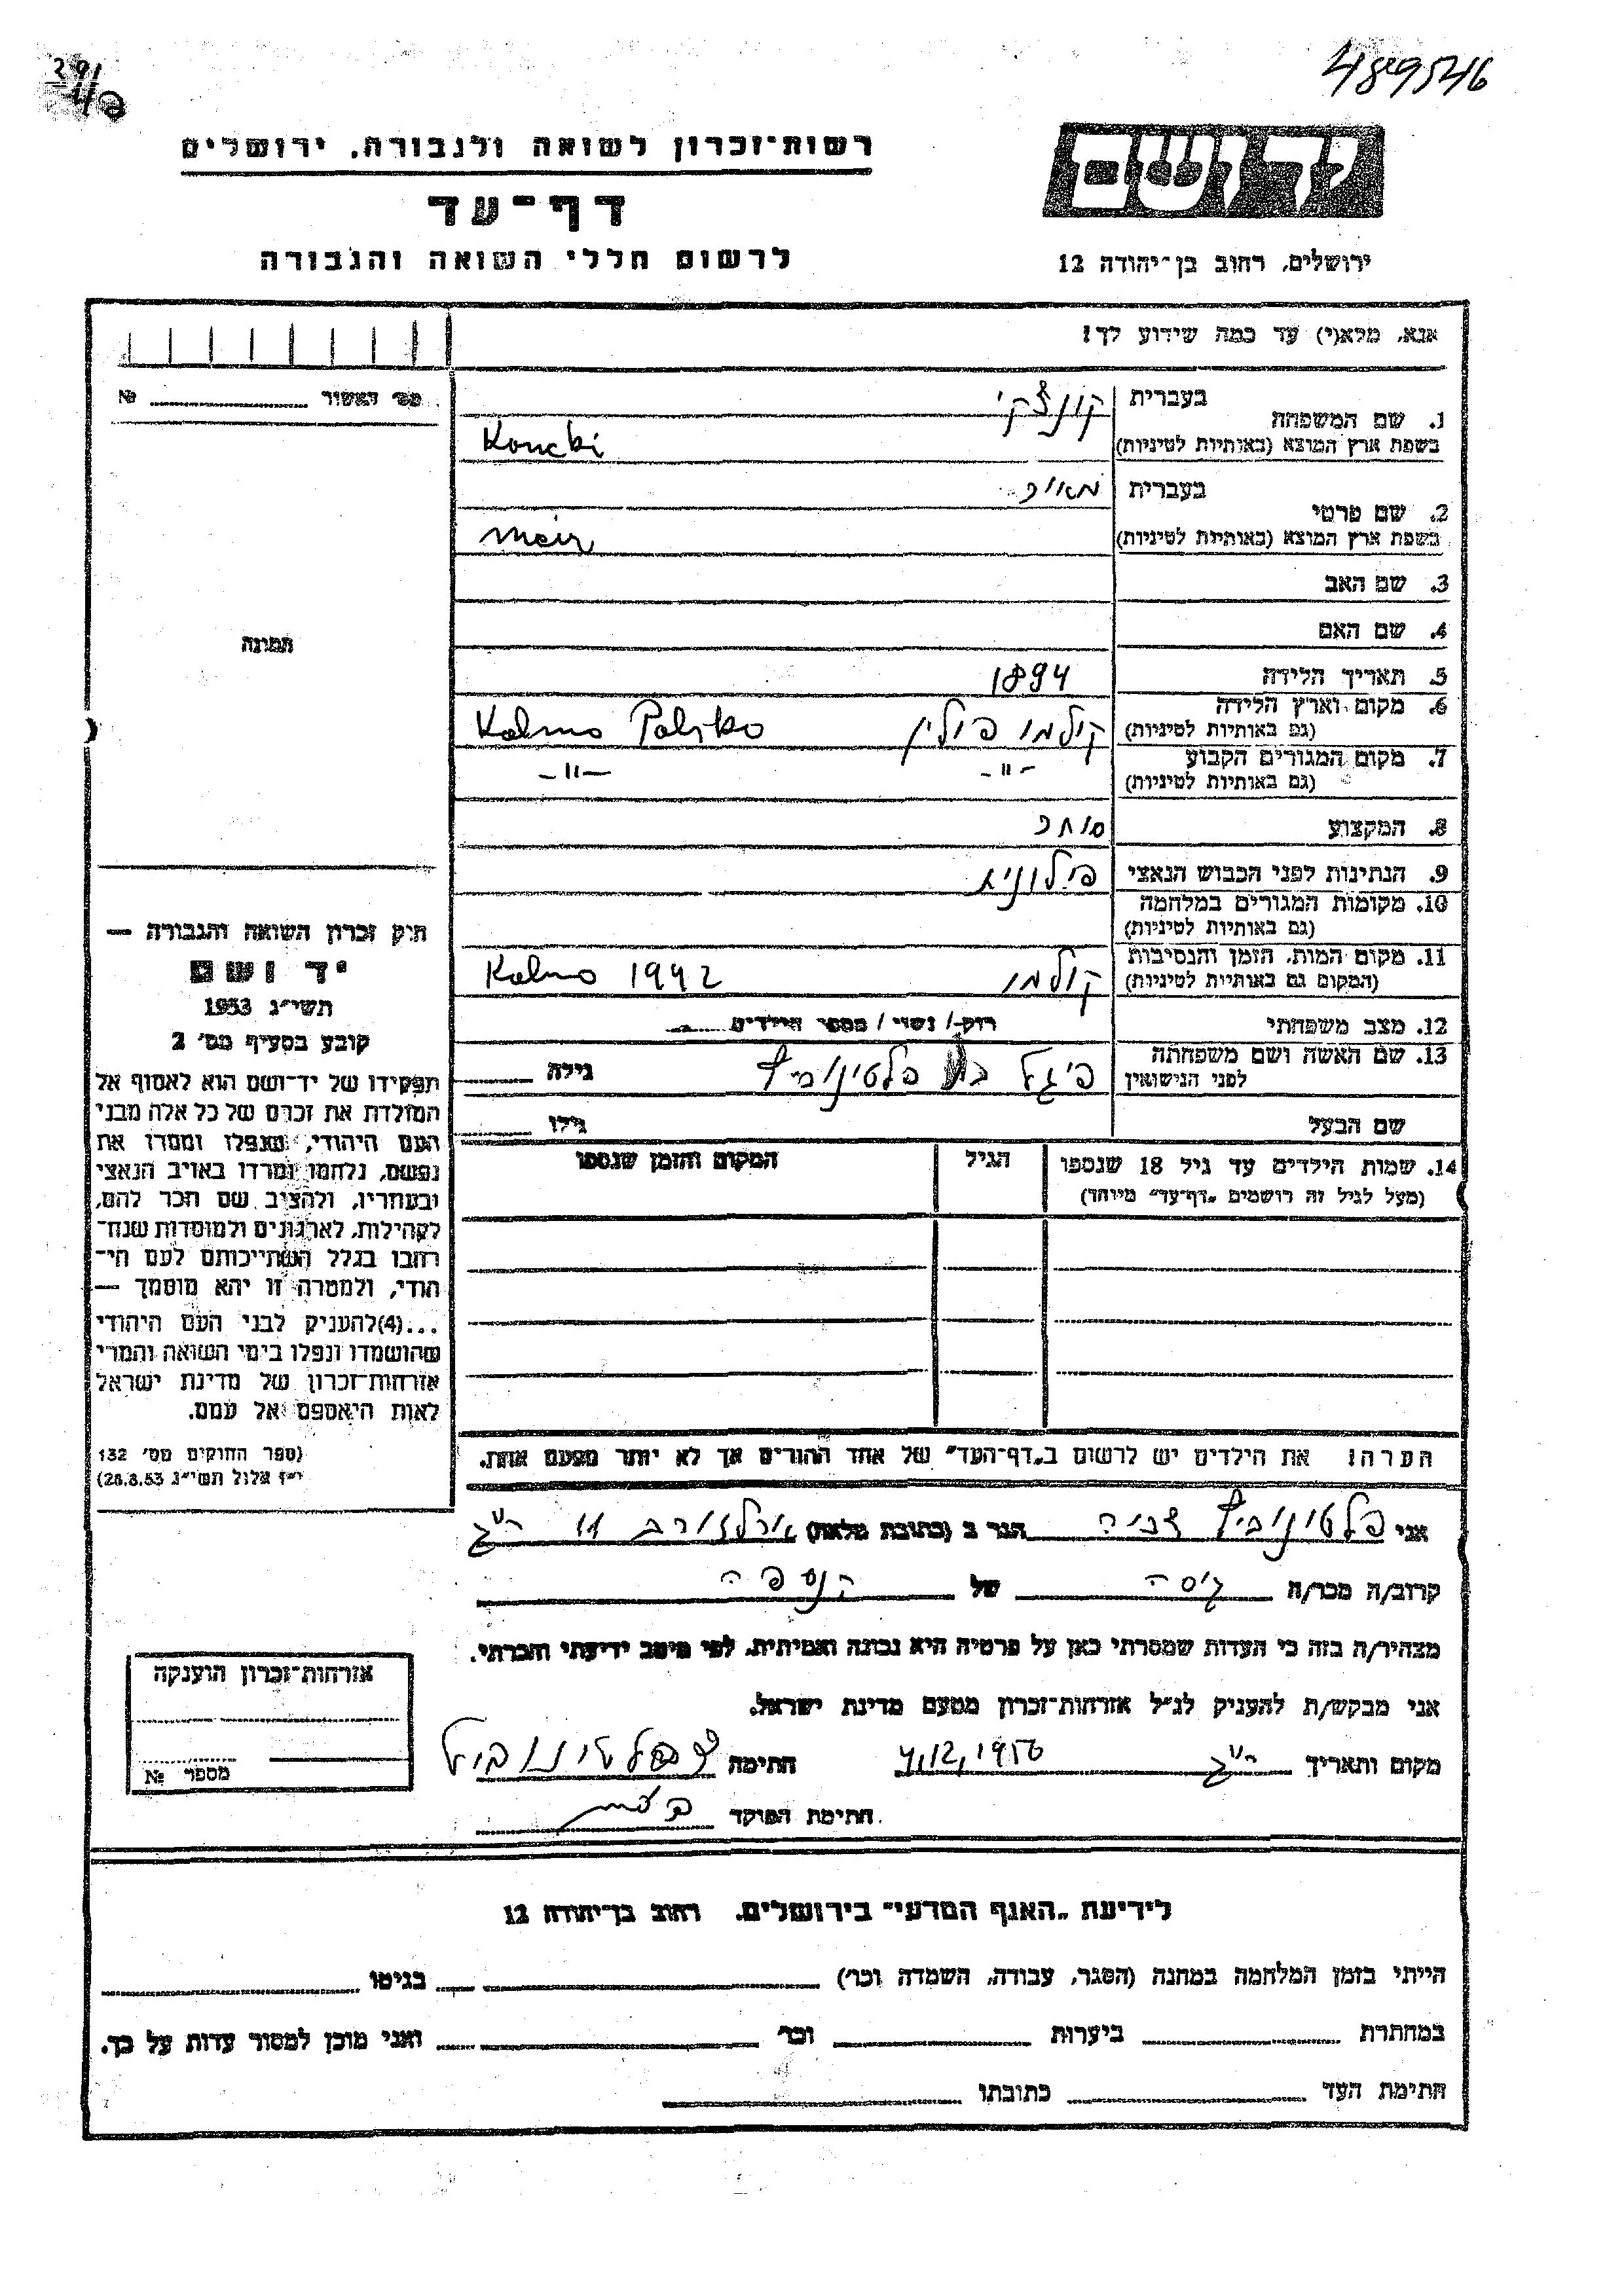 489546
רשות־זכרון לשואה ולגבורה, ירושלים
דף־עד
לרשום חללי השואה והגבורה
ידושם
ירושלים, רחוב בן־יהודה 12
אנא, מלא(י) עד כמה שידוע לך!
מס' האשור № 
1. שם המשפחה בעברית קונצקי
בשפת ארץ המוצא (באותיות לטיניות) Koncki
2. שם פרטי בעברית מאיר
בשפת ארץ המוצא (באותיות לטיניות) Meir
3. שם האב
4. שם האם
תמונה
5. תאריך הלידה 1894
6. מקום וארץ הלידה (גם באותיות לטיניות) קולמו פולין Kolmo Polsko
7. מקום המגורים הקבוע (גם באותיות לטיניות) -"- -"-
8. המקצוע סוחר
9. הנתינות לפני הכבוש הנאצי פולוניא
10. מקומות המגורים במלחמה (גם באותיות לטיניות)
11. מקום המות, הזמן והנסיבות (המקום גם באותיות לטיניות) קולמו Kolmo 1942
12. מצב משפחתי רוק / נשוי / מספר הילדים
13. שם האשה ושם משפחתה לפני הנישואין פיגל בת פלטינוביץ גילה
שם הבעל גילו
14. שמות הילדים עד גיל 18 שנספו הגיל המקום והזמן שנספו
(מעל לגיל זה רושמים „דף־עד" מיוחד)
חוק זכרון השואה והגבורה —
יד ושם
תשי"ג 1953
קובע בסעיף מס' 2
תפקידו של יד־ושם הוא לאסוף אל
המולדת את זכרם של כל אלה מבני
העם היהודי, שנפלו ומסרו את
נפשם, נלחמו ומרדו באויב הנאצי
ובעוזריו, ולהציב שם וזכר להם,
לקהילות, לארגונים ולמוסדות שנח־
רבו בגלל השתייכותם לעם הי־
הודי, ולמטרה זו יהא מוסמך —
...(4) להעניק לבני העם היהודי
שהושמדו ונפלו בימי השואה והמרי
אזרחות־זכרון של מדינת ישראל
לאות היאספם אל עמם.
(ספר החוקים מס' 132
י"ז אלול תשי"ג 28.8.53)
הערה: את הילדים יש לרשום ב„דף־העד" של אחד ההורים אך לא יותר מפעם אחת.
אני פלטינוביץ צביה הגר ב (כתובת מלאה) ארלוזורוב 11
קרוב/ה מכר/ה גיסה של הנספה
מצהיר/ה בזה כי העדות שמסרתי כאן על פרטיה היא נכונה ואמיתית, לפי מיטב ידיעתי והכרתי.
אני מבקש/ת להעניק לנ"ל אזרחות־זכרון מטעם מדינת ישראל.
מקום ותאריך 4.12.1956 חתימה צ פלטינוביץ
חתימת הפוקד
אזרחות־זכרון הוענקה
מספר №
לידיעת „האגף המדעי" בירושלים, רחוב בן־יהודה 12
הייתי בזמן המלחמה במחנה (הסגר, עבודה, השמדה וכו') בגיטו
במחתרת ביערות וכו' ואני מוכן למסור עדות על כך.
חתימת העד כתובתו